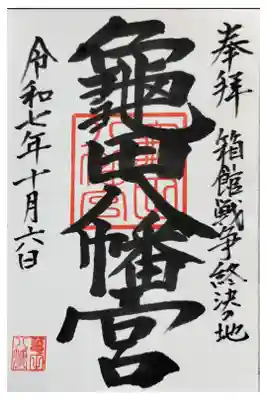 奉拝
箱館戦争終決の地
龜田八幡宮
令和七年十月六日